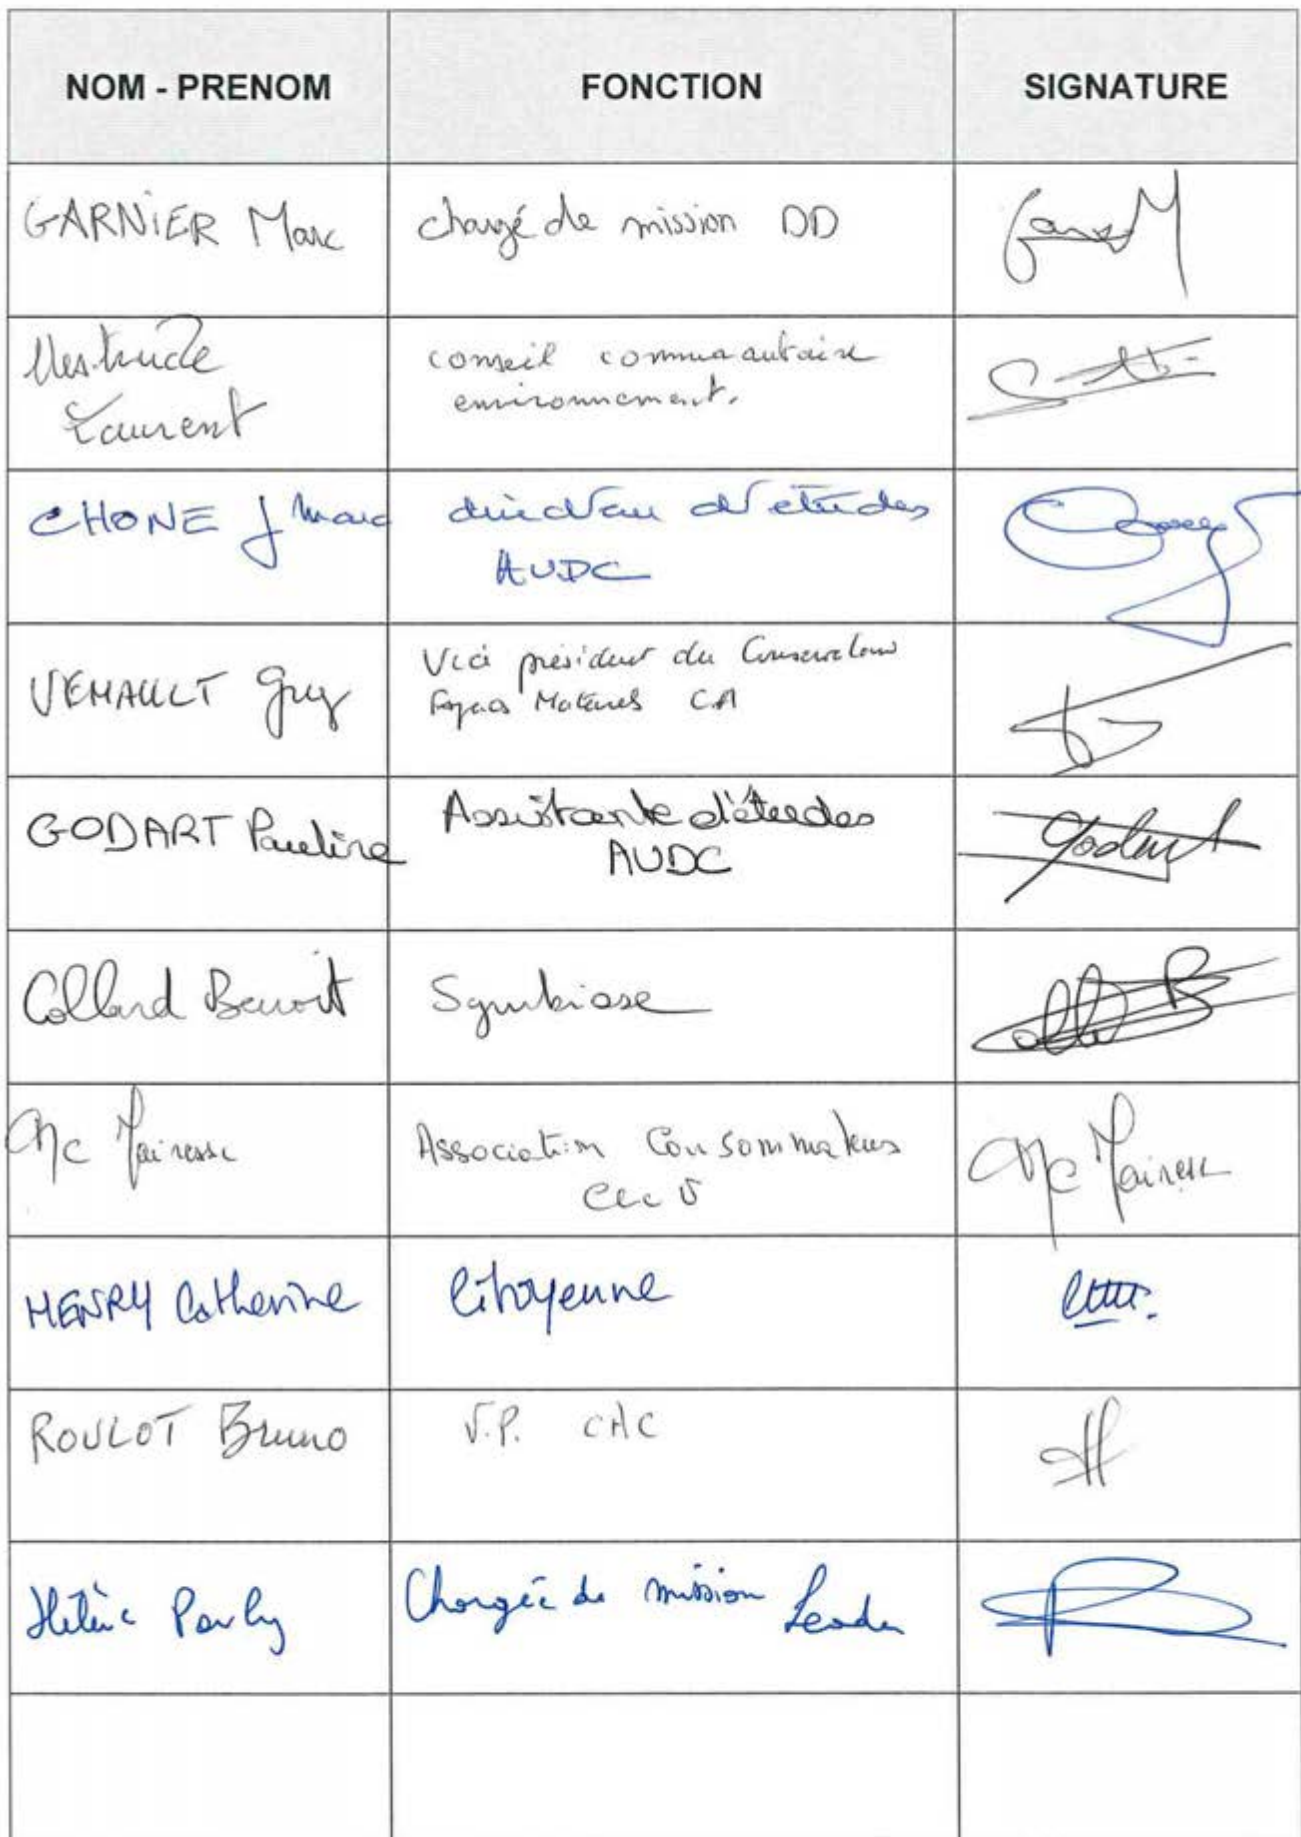 NOM - PRENOM FONCTION SIGNATURE
GARNIER Marc chargé de mission DD
Laurent
conseil communautaire
environnement.
CHONE J Marc directeur d'études
AUDC
VEMAULT Guy
Vice président du Conservatoire
Espaces Naturels C.A
GODART Pauline
Assistante d'études
AUDC
Godart
Collard Benoit Symbiose
MC Mairesse
Association Consommateurs
MC Mairesse
HENRY Catherine Citoyenne
ROULOT Bruno V.P. CAC
Hélène Pauly Chargée de mission Leader